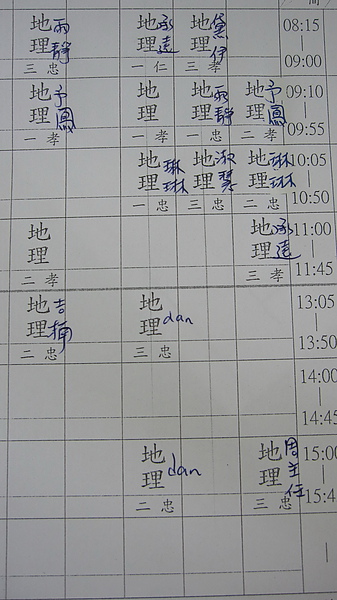 地理 雨靜 三忠
地理 承遠 一仁
地理 黛伊 三孝
08:15
|
09:00
地理 予鳳 一孝
地理 一孝
地理 雨靜 一忠
地理 予鳳 二孝
09:10
|
09:55
地理 琳琳 一忠
地理 淑慧 三忠
地理 琳琳 二忠
10:05
|
10:50
地理 二孝
地理 承遠 三孝
11:00
|
11:45
地理 吉楠 二忠
地理 dan 三忠
13:05
|
13:50
14:00
|
14:45
地理 dan 二忠
地理 周主任 三忠
15:00
|
15:4
|